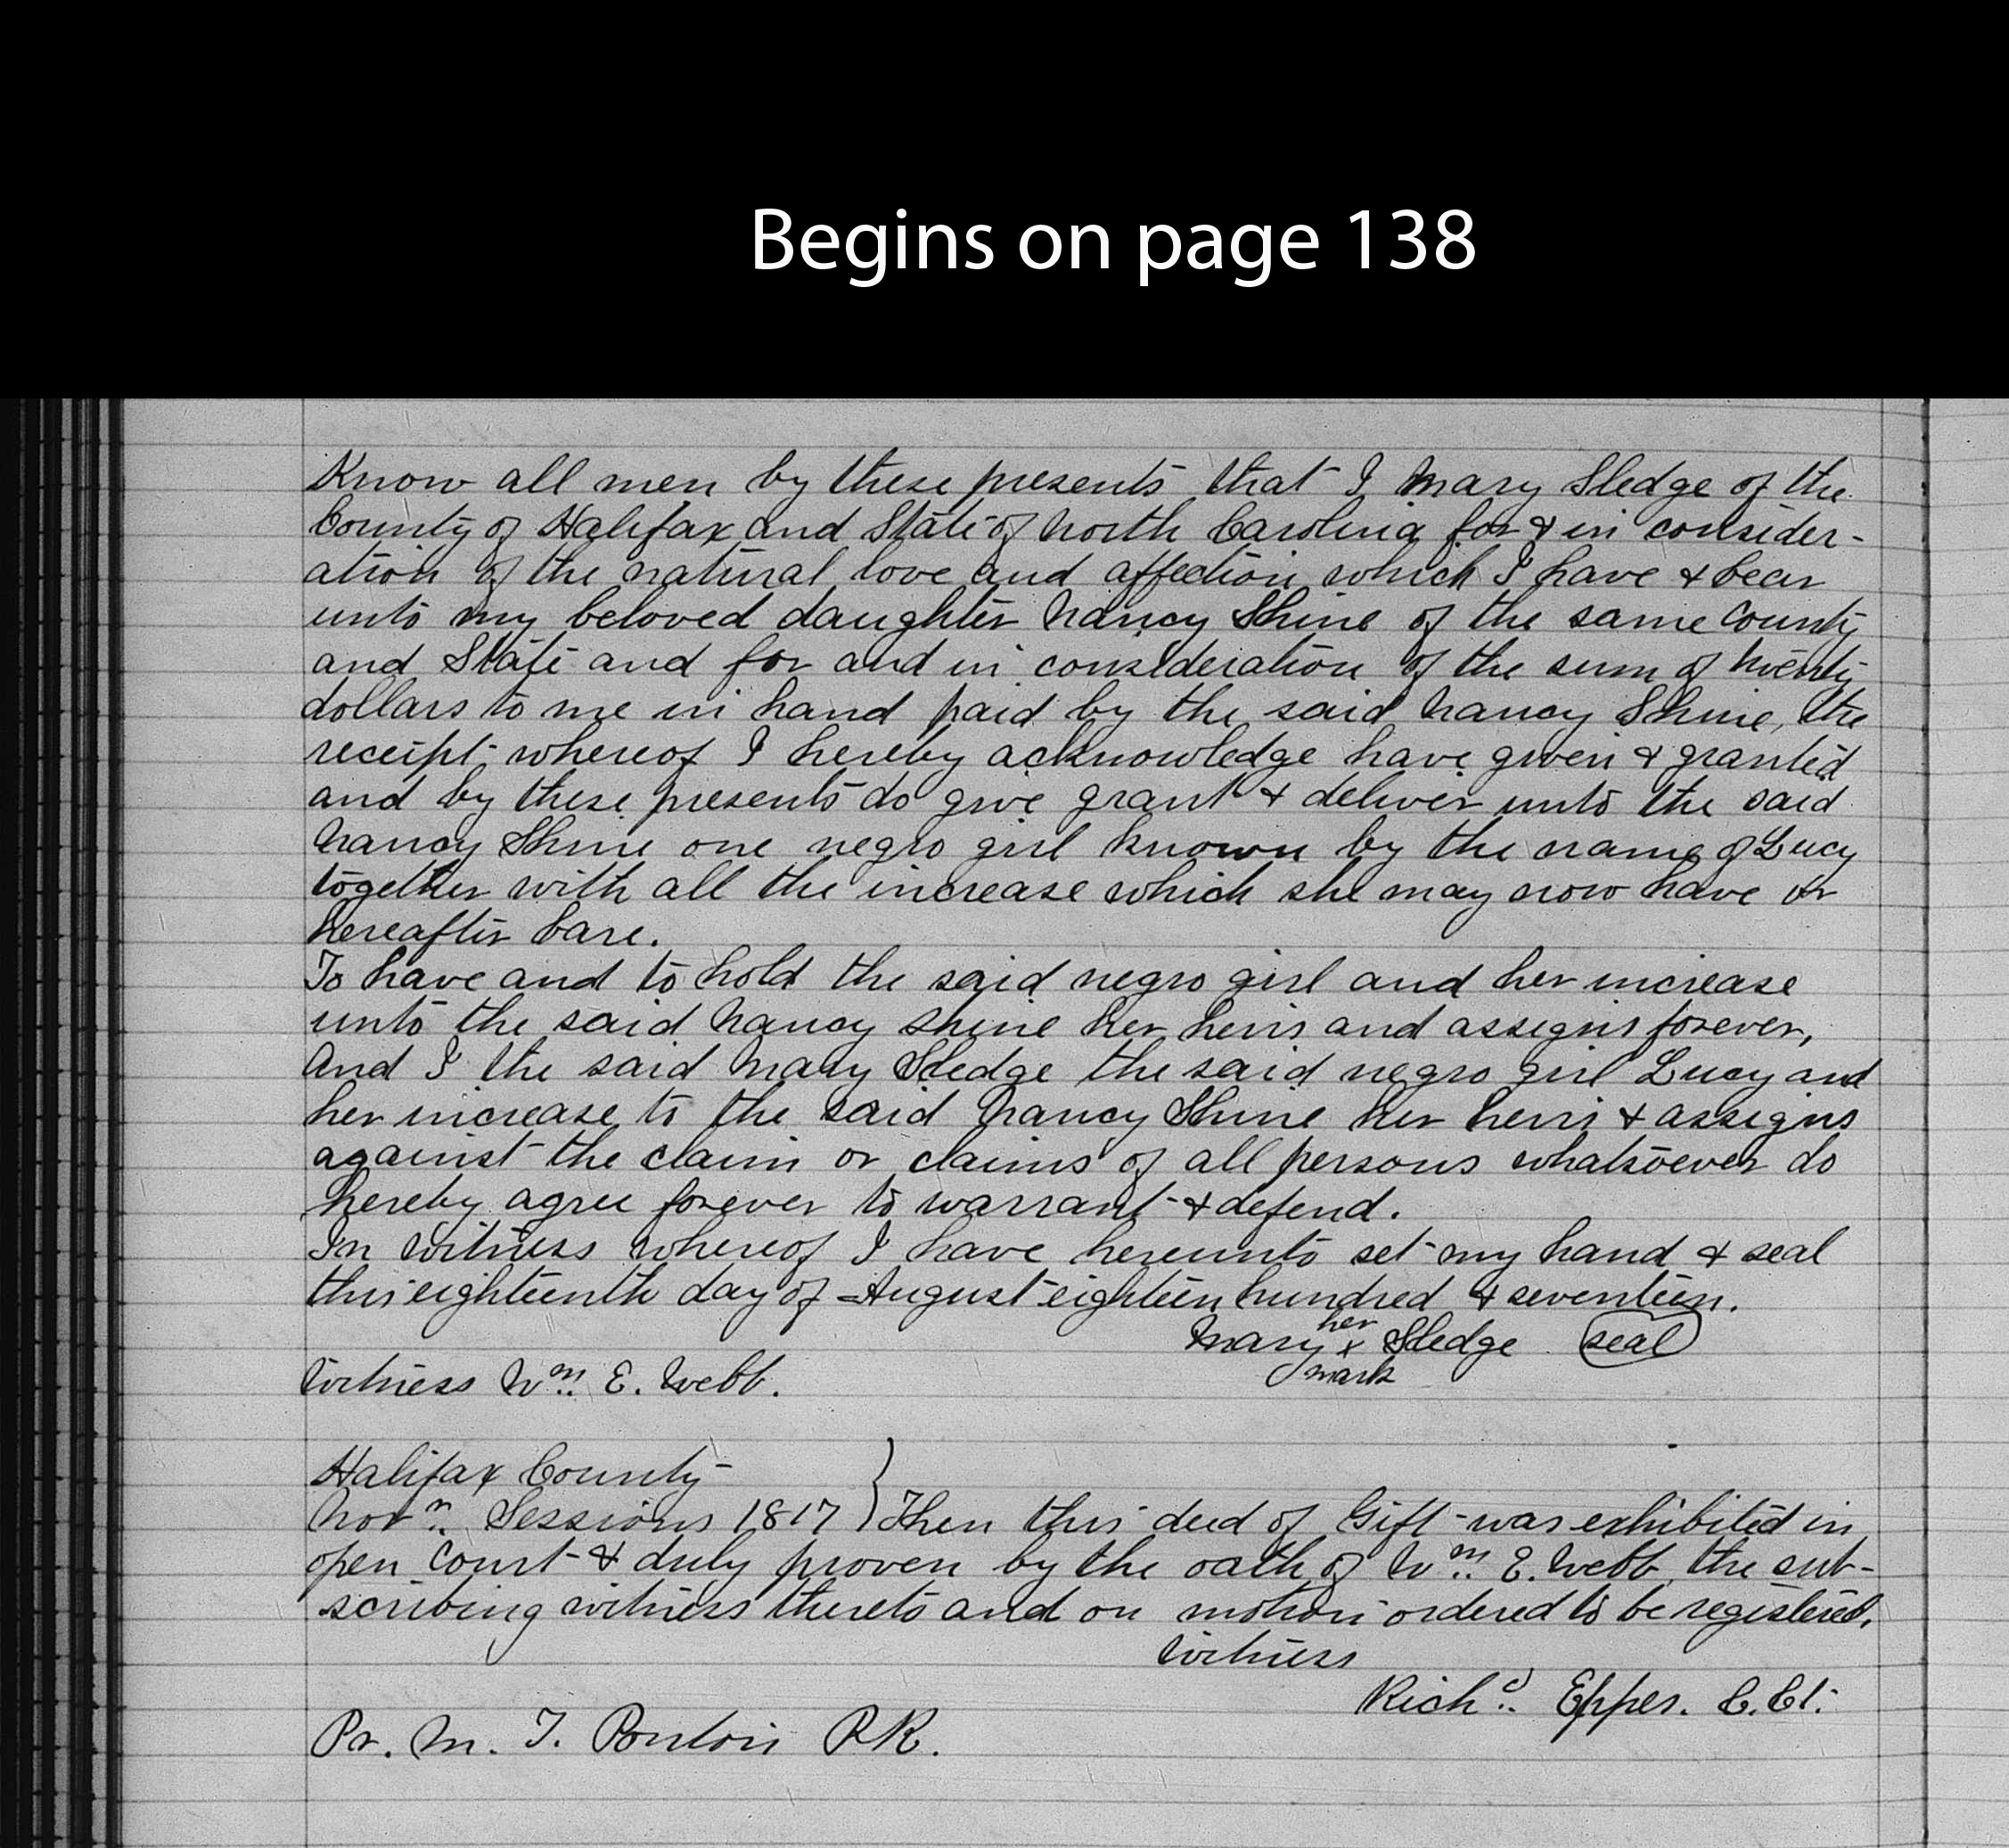 Begins on page 138
Know all men by these presents that I Mary Sledge of the
County of Halifax and State of North Carolina for & in consider-
ation of the natural love and affection which I have & bear
unto my beloved daughter Nancy Shine of the same County
and State and for and in consideration of the sum of twenty
dollars to me in hand paid by the said Nancy Shine, the
receipt whereof I hereby acknowledge have given & granted
and by these presents do give grant & deliver unto the said
Nancy Shine one negro girl known by the name of Lucy
together with all the increase which she may now have or
hereafter bare.
To have and to hold the said negro girl and her increase
unto the said Nancy Shine her heirs and assigns forever,
And I the said Mary Sledge the said negro girl Lucy and
her increase to the said Nancy Shine her heirs & assigns
against the claim or claims of all persons whatsoever do
hereby agree forever to warrant & defend.
In witness whereof I have hereunto set my hand & seal
this eighteenth day of August eighteen hundred & seventeen.
her
Mary x Sledge seal
mark
Witness Wm. E. Webb.
Halifax County
Novr. Sessions 1817 } Then this deed of Gift was exhibited in
open Court & duly proven by the oath of Wm. E. Webb the sub-
scribing witness thereto and on motion ordered to be registered.
Witness
Richd. Eppes. C.Ct.
Pr. M. T. Ponton P.R.